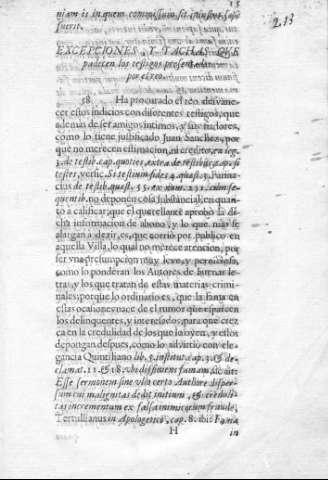 15
213
niam is in quem commissum sit iniustus
fuerit.
EXCEPCIONES, Y TACHAS QUE
padecen los testigos presentados
por el reo.
58. Ha procurado el reo desvane-
cer estos indicios con diferentes testigos, que
ademàs de ser amigos intimos, y sus fiadores,
como lo tiene justificado Juan Sanchez, por
què no merecen estimacion, ni credito, ex leg.
3. de testib. cap. quoties, ext. de testibus, cap. si
testes, versic. Si testium fides 4. quæst. 3. Farina-
cius de testib. quæst. 55. ex num. 231. cum se-
quentib. no deponen cosa substancial, en quan-
to à calificar, que el querellante aprobò la di-
cha informacion de abono, y lo que mas se
alargan à dezir, es, que corriò por publico en
aquella Villa, lo qual no merece atencion, por
ser vna presumpcion muy leve, y perniciosa,
como lo ponderan los Autores de buenas le-
tras, y los que tratan de estas materias crimi-
nales; porque lo ordinario es, que la fama en
estas ocasiones nace del rumor que esparcen
los delinquentes, y interesados, para que crez-
ca en la credulidad de los que lo oyen, y estos
depongan despues, como lo advirtiò con ele-
gancia Quintiliano lib. 5. institut. cap. 3. & de-
clamat. 11. & 18. vbi diffiniens famam sic ait:
Esse sermonem sine vllo certo Authore disper-
sum cui malignitas dedit initium, & creduli-
tas incrementum ex falsa inimicorum fraude,
Tertullianus in Apologetico, cap. 8. ibi: Fama
H in